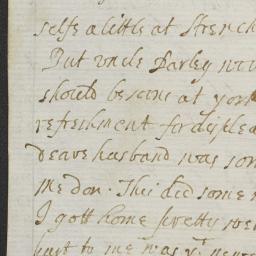 selfe a little at french
But uncle Darley wou
should be seene at york
refreshment for displea
deare husband was som
me don. This did some
I gott home pretty wel
hurt to me was yt never